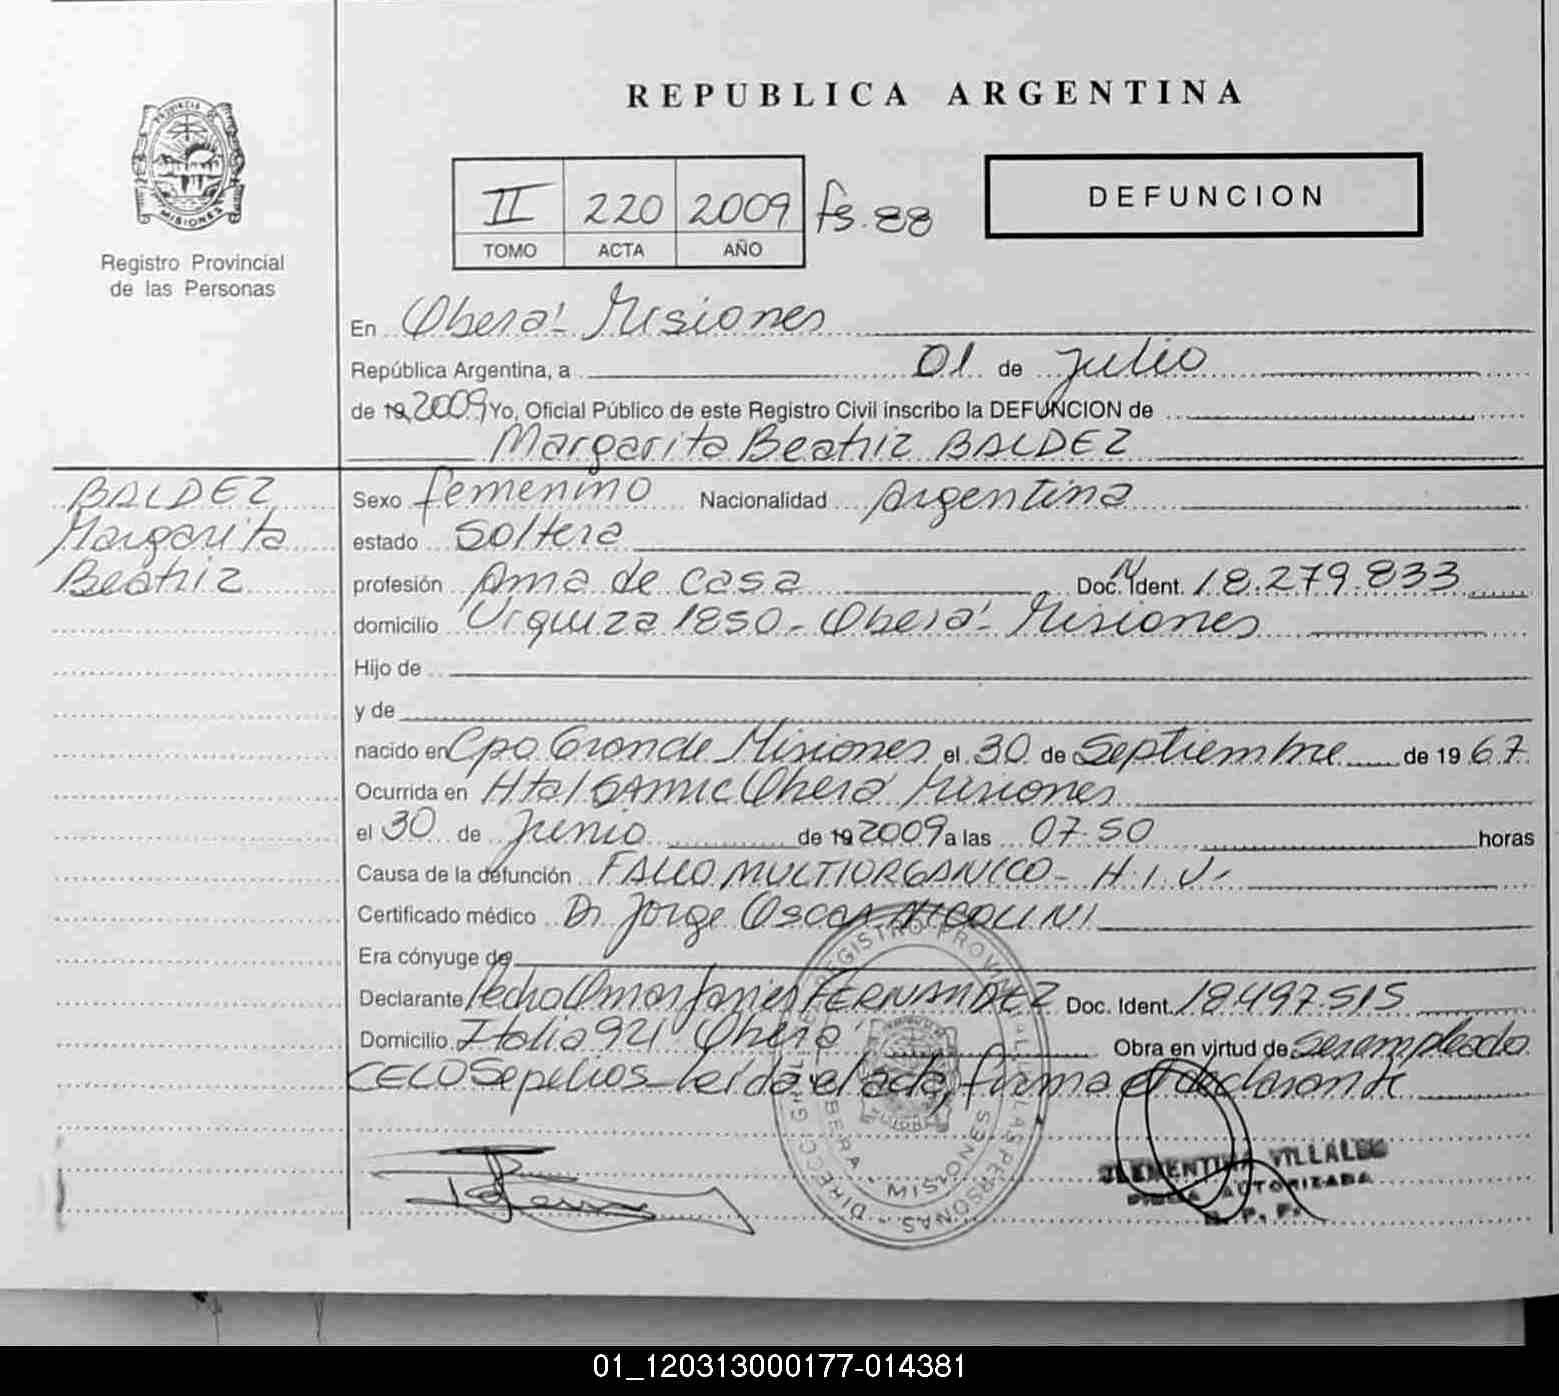 REPUBLICA ARGENTINA
PROVINCIA DE
MISIONES
Registro Provincial
de las Personas
II 220 2009 fs. 88
TOMO ACTA AÑO
DEFUNCION
En Oberá - Misiones
República Argentina, a 01 de Julio
de 19 2009 Yo, Oficial Público de este Registro Civil inscribo la DEFUNCION de
Margarita Beatriz BALDEZ
BALDEZ
Margarita
Beatriz
Sexo femenino Nacionalidad Argentina
estado Soltera
profesión Ama de casa Doc. Ident. 18.279.833
domicilio Urquiza 1850 - Oberá - Misiones
Hijo de
y de
nacido en Cpo Grande Misiones el 30 de Septiembre de 1967
Ocurrida en Htal SAMIC Oberá Misiones
el 30 de Junio de 19 2009 a las 07.50 horas
Causa de la defunción FALLO MULTIORGANICO - H.I.V.
Certificado médico Dr Jorge Oscar NICOLINI
Era cónyuge de
Declarante Pedro Omar Javier FERNANDEZ Doc. Ident. 18.497.515
Domicilio Italia 921 Oberá Obra en virtud de ser empleado
CELO Sepelios - leída el acta, firma el declarante
REGISTRO PROVINCIAL DE LAS PERSONAS
OBERA - MISIONES
CLEMENTINA VILLALBA
FIRMA AUTORIZADA
R. P. P.
01_120313000177-014381